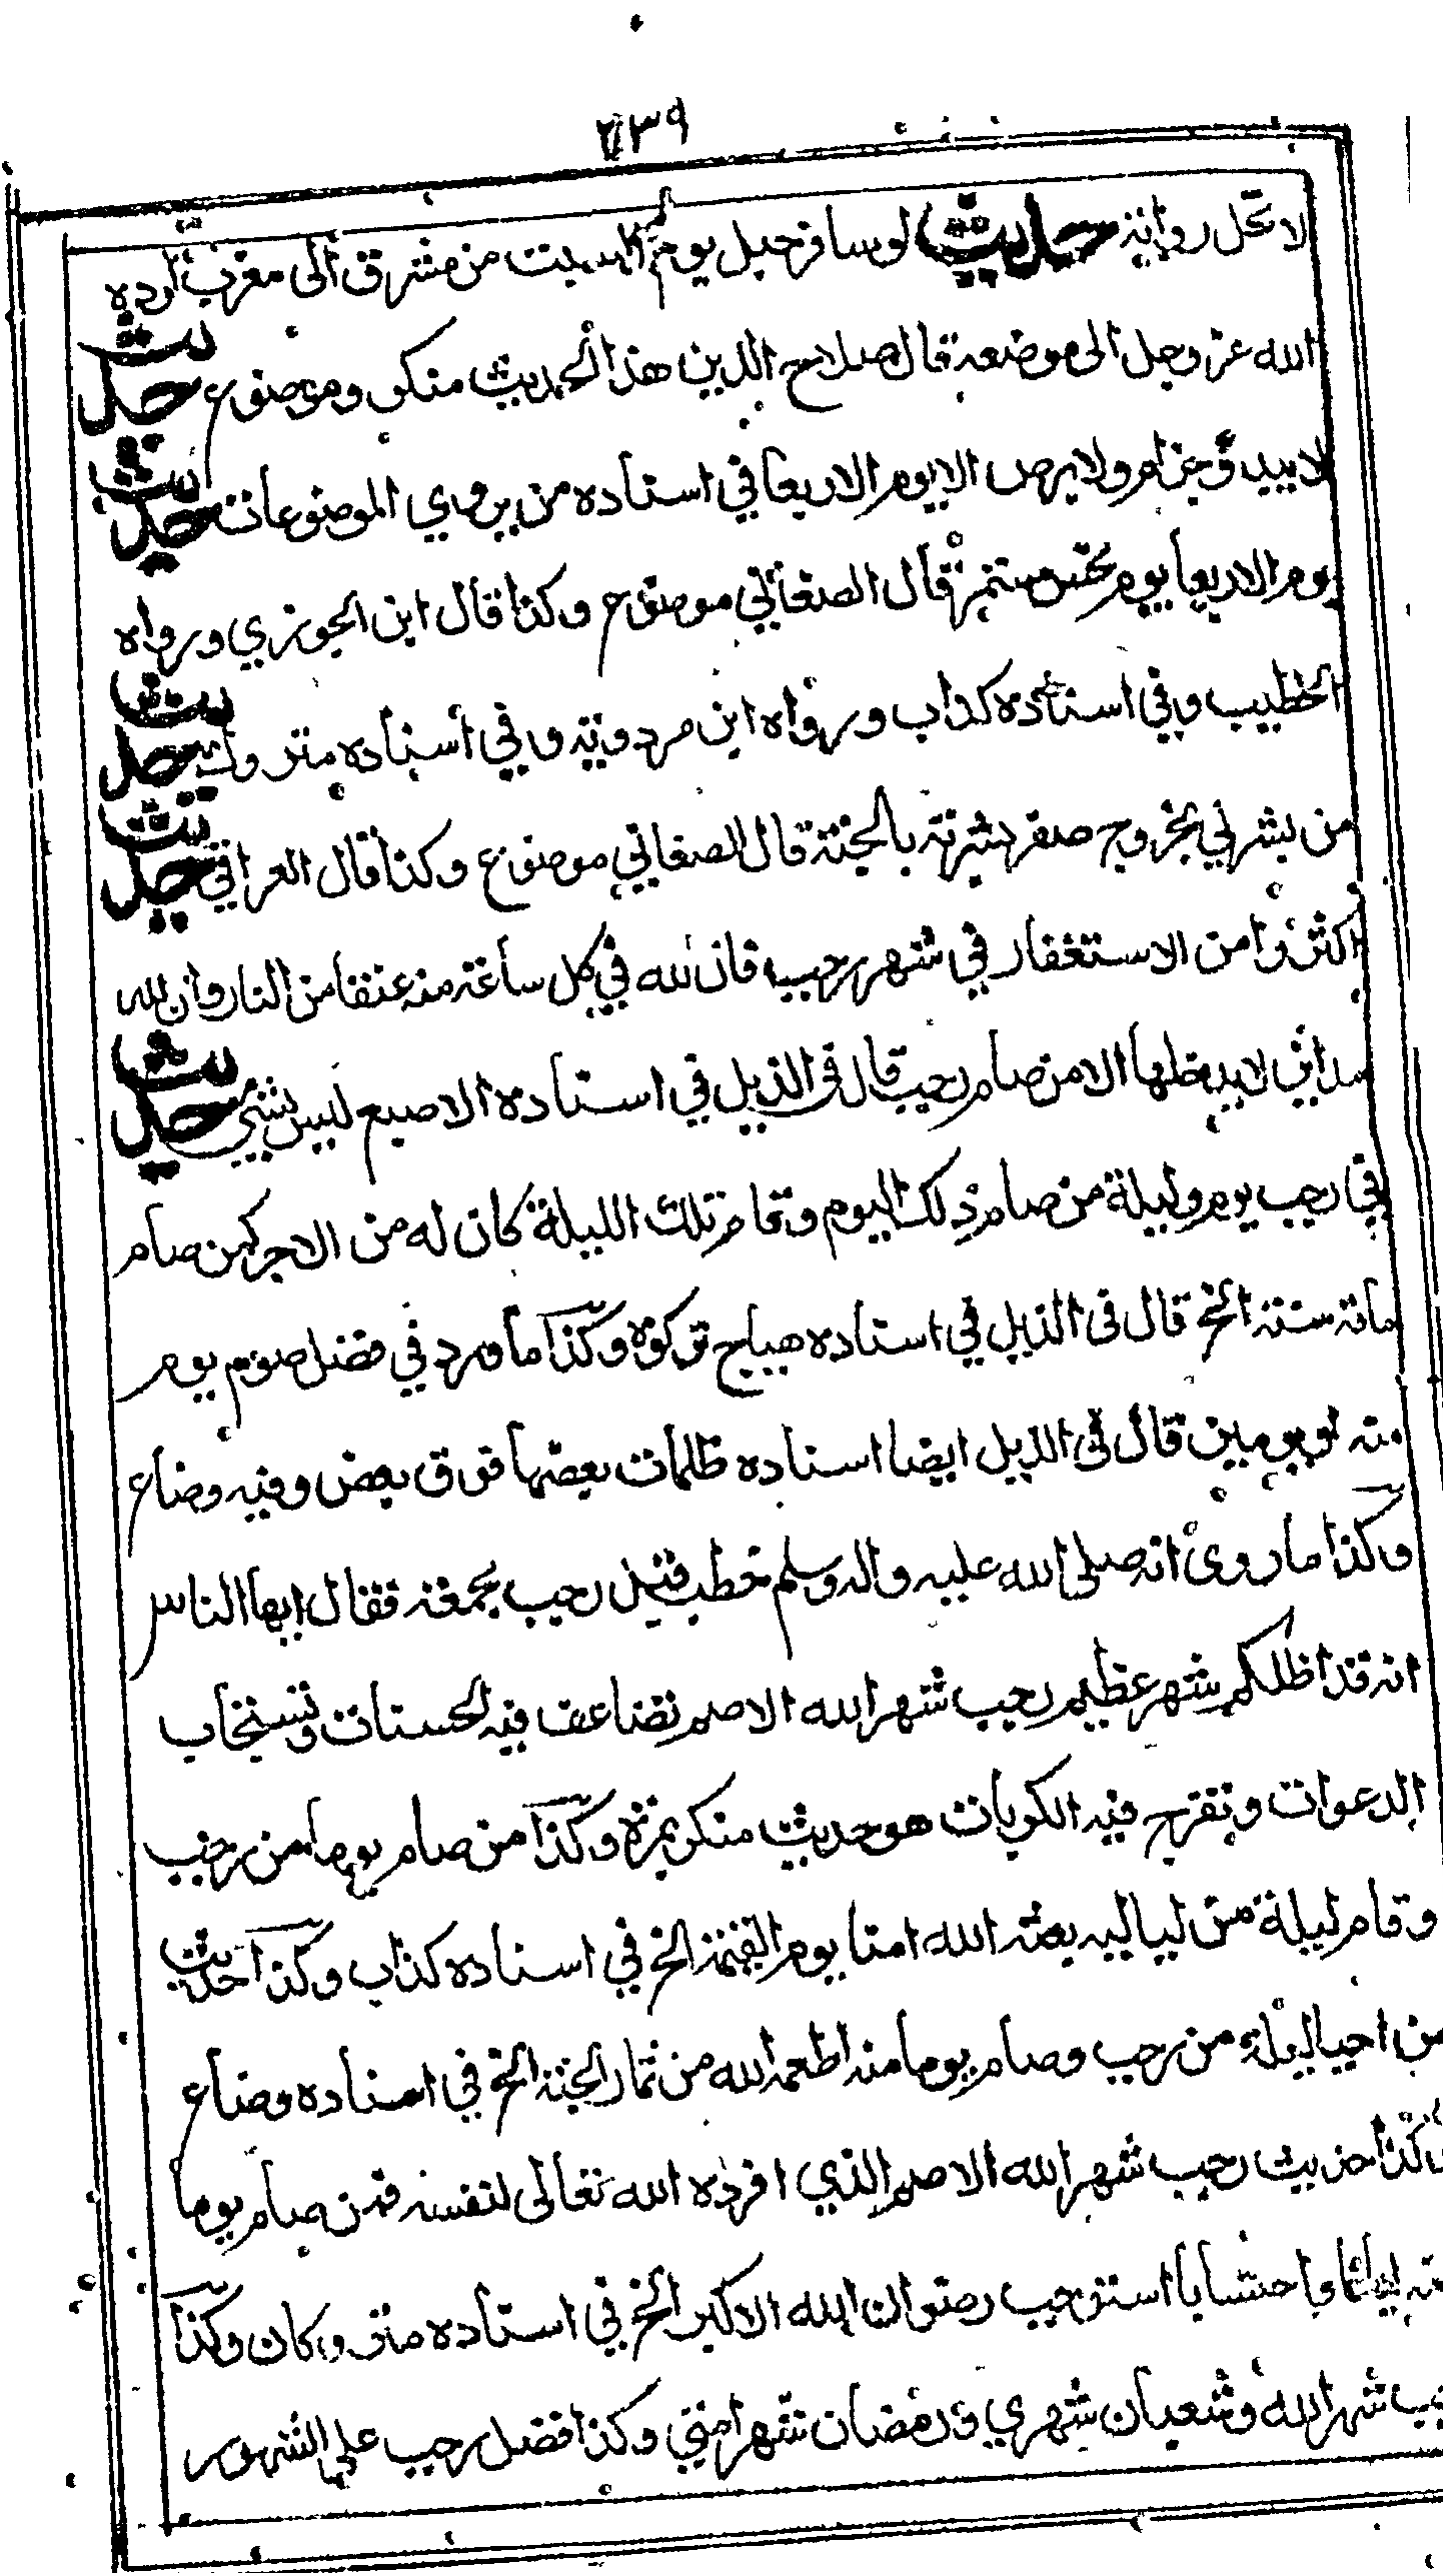 ٢٣٩
لا تحل روايته حديث لو سافر جبل يوم السبت من مشرق الى مغرب لرده
الله عز وجل الى موضعه قال صلاح الدين هذا الحديث منكر وموضوع حديث
لا يبدو جذام ولا برص الا يوم الاربعا في اسناده من يروي الموضوعات حديث
يوم الاربعا يوم نحس مستمر قال الصغاني موضوع وكذا قال ابن الجوزي ورواه
الخطيب وفي اسناده كذاب ورواه ابن مردويه وفي اسناده متروك حديث
من بشرني بخروج صفر بشرته بالجنة قال الصغاني موضوع وكذا قال العراقي حديث
اكثروا من الاستغفار في شهر رجب فان لله في كل ساعة منه عتقا من النار وان لله
مداين لا يدخلها الا من صام رجب قال في الذيل في اسناده الاصبغ ليس بشي حديث
في رجب يوم وليلة من صام ذلك اليوم وقام تلك الليلة كان له من الاجر كمن صام
مائة سنة الخ قال في الذيل في اسناده هياج تركوه وكذا ما ورد في فضل صوم يوم
منه او يومين قال في الذيل ايضا اسناده ظلمات بعضها فوق بعض وفيه وضاع
وكذا ما روى انه صلى الله عليه واله وسلم خطب قبل رجب بجمعة فقال ايها الناس
انه قد اظلكم شهر عظيم رجب شهر الله الاصم تضاعف فيه الحسنات وتستجاب
الدعوات وتفرج فيه الكربات هو حديث منكر بمرة وكذا من صام يوما من رجب
وقام ليلة من لياليه بعثه الله امنا يوم القيمة الخ في اسناده كذاب وكذا حديث
من احيا ليلة من رجب وصام يوما منه اطعمه الله من ثمار الجنة الخ في اسناده وضاع
وكذا حديث رجب شهر الله الاصم الذي افرده الله تعالى لنفسه فمن صام يوما
منه ايمانا واحتسابا استوجب رضوان الله الاكبر الخ في اسناده متروكان وكذا
رجب شهر الله وشعبان شهري ورمضان شهر امتي وكذا فضل رجب على الشهور